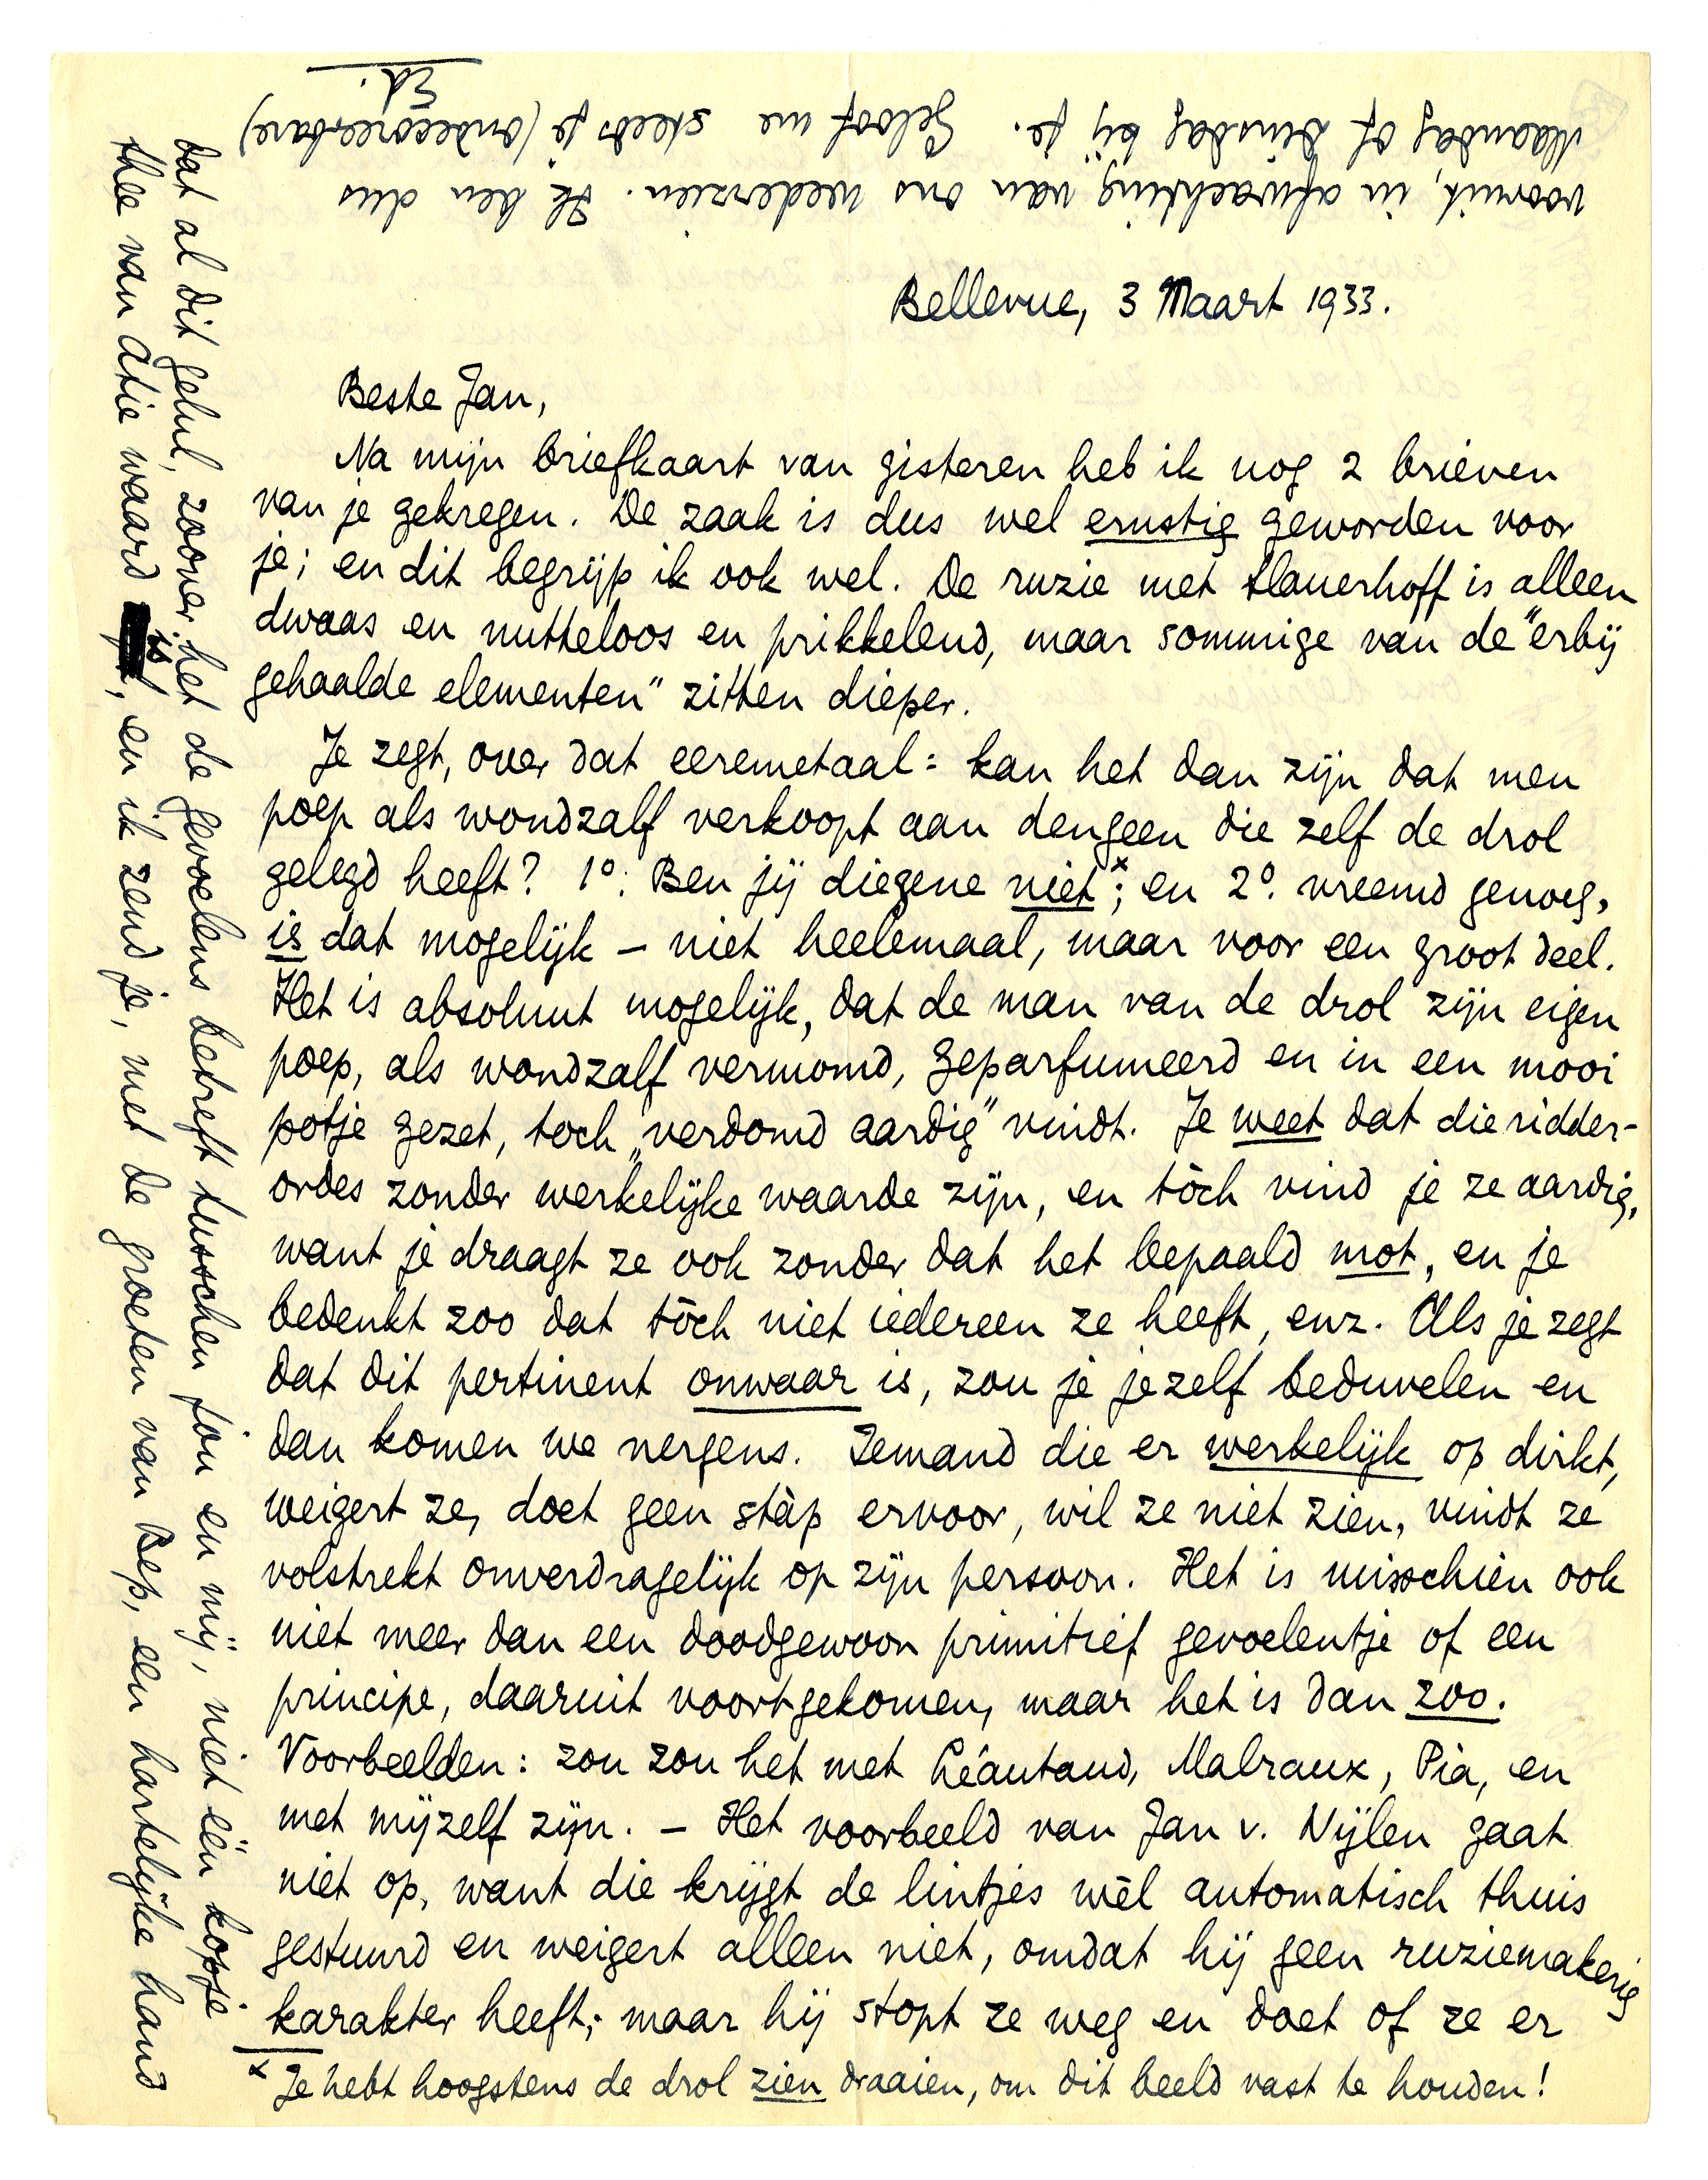 Bellevue, 3 Maart 1933.
Beste Jan,
Na mijn briefkaart van gisteren heb ik nog 2 brieven
van je gekregen. De zaak is dus wel ernstig geworden voor
je; en dit begrijp ik ook wel. De ruzie met Slauerhoff is alleen
dwaas en nutteloos en prikkelend, maar sommige van de "erbij
gehaalde elementen" zitten dieper.
Je zegt, over dat eeremetaal: kan het dan zijn dat men
poep als wondzalf verkoopt aan dengeen die zelf de drol
gelegd heeft? 1º. Ben jij diegene niet ˣ; en 2º. vreemd genoeg,
is dat mogelijk – niet heelemaal, maar voor een groot deel.
Het is absoluut mogelijk, dat de man van de drol zijn eigen
poep, als wondzalf vermomd, geparfumeerd en in een mooi
potje gezet, toch „verdomd aardig" vindt. Je weet dat die ridder-
ordes zonder werkelijke waarde zijn, en tòch vind je ze aardig,
want je draagt ze ook zonder dat het bepaald mot, en je
bedenkt zoo dat tòch niet iedereen ze heeft, enz. Als je zegt
dat dit pertinent onwaar is, zou je jezelf beduvelen en
dan komen we nergens. Iemand die er werkelijk op dirkt,
weigert ze, doet geen stàp ervoor, wil ze niet zien, vindt ze
volstrekt onverdragelijk op zijn persoon. Het is misschien ook
niet meer dan een doodgewoon primitief gevoelentje of een
principe, daaruit voortgekomen, maar het is dan zoo.
Voorbeelden: zou zou het met Léautaud, Malraux, Pia, en
met mijzelf zijn. – Het voorbeeld van Jan v. Nijlen gaat
niet op, want die krijgt de lintjes wèl automatisch thuis
gestuurd en weigert alleen niet, omdat hij geen ruziemakerig
karakter heeft; maar hij stopt ze weg en doet of ze er
x Je hebt hoogstens de drol zien draaien, om dit beeld vast te houden!
dat al dit gelul, zoover het de gevoelens betreft tusschen jou en mij, niet één kopje
thee van Atie waard is, en ik zend je, met de groeten van Bep, een hartelijke hand
vooruit, in afwachting van ons wederzien. Ik ben dus
Maandag of Dinsdag bij je. Geloof me steeds je (ondecoreerbare)
Ed.